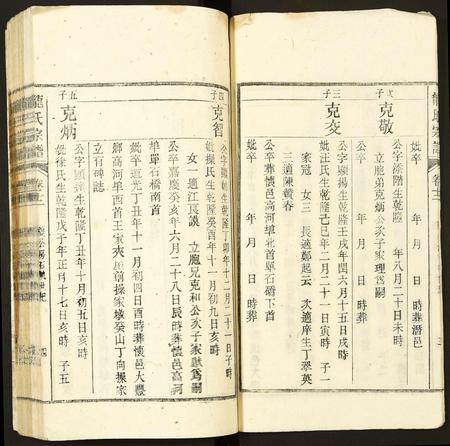 次子
克敬
公字添階生乾隆 年八月二十日未時
妣卒 年 月 日 時葬潛邑
立胞弟克炳公次子家理爲嗣
公卒 年 月 日 時葬
妣卒 年 月 日 時葬
三子
克交
公字顯揚生乾隆壬戌年閏六月十五日戌時
妣汪氏生乾隆己巳年二月二十一日寅時 子一
家冠 女三 長適鄭起云 次適摩生丁翠英
三適陳黄春
公卒葬懷邑高河埠北首單石磆下首
妣卒 年 月 日 時葬
四子
克智
公字
生乾隆丁卯年十二月二十一日子時
妣操氏生乾隆癸酉年十一月初九日亥時
女一適江良謨 立胞兄克和公次子家
爲嗣
公卒嘉慶癸亥年六月二十八日辰時葬懷邑高河
埠單石橋南首
妣卒道光丁丑年十一月初四日酉時葬懷邑大豐
鄉高河埠西首王家夾屋前操家墩癸山丁向操家
立有碑誌
五子
克炳
公字
生乾隆丁丑年十月初五日亥時
妣徐氏生乾隆戊子年正月十七日亥時 子五
龍氏宗譜
卷
龍氏宗譜
卷